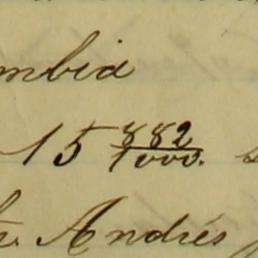 mbia
15 882/1000.
Andrés